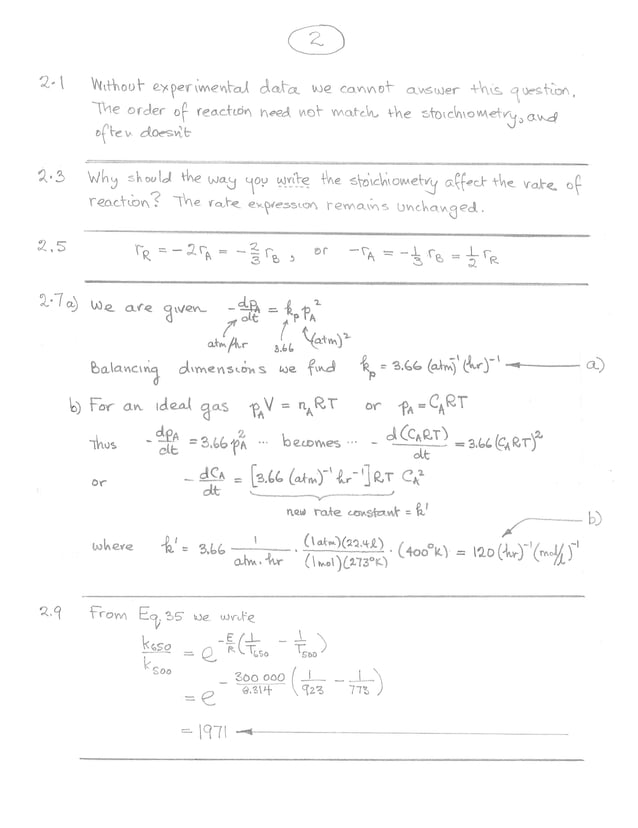 2
2.1 Without experimental data we cannot answer this question.
The order of reaction need not match the stoichiometry, and
often doesn't
2.3 Why should the way you write the stoichiometry affect the rate of
reaction? The rate expression remains unchanged.
2.5 r_R = -2r_A = -2/3 r_B, or -r_A = -1/3 r_B = 1/2 r_R
2.7 a) We are given -dp_A/dt = k_p p_A^2
atm/hr 3.66 (atm)^2
Balancing dimensions we find k_p = 3.66 (atm)^-1 (hr)^-1 ← a)
b) For an ideal gas p_A V = n_A RT or p_A = C_A RT
Thus -dp_A/dt = 3.66 p_A^2 ... becomes ... -d(C_A RT)/dt = 3.66 (C_A RT)^2
or -dC_A/dt = [3.66 (atm)^-1 hr^-1] RT C_A^2
new rate constant = k'
b)
where k' = 3.66 1/atm.hr · (1 atm)(22.4 l)/(1 mol)(273°K) · (400°K) = 120 (hr)^-1 (mol/l)^-1
2.9 From Eq. 35 we write
k_650/k_500 = e^{-E/R (1/T_650 - 1/T_500)}
= e^{-300 000/8.314 (1/923 - 1/773)}
= 1971 ←